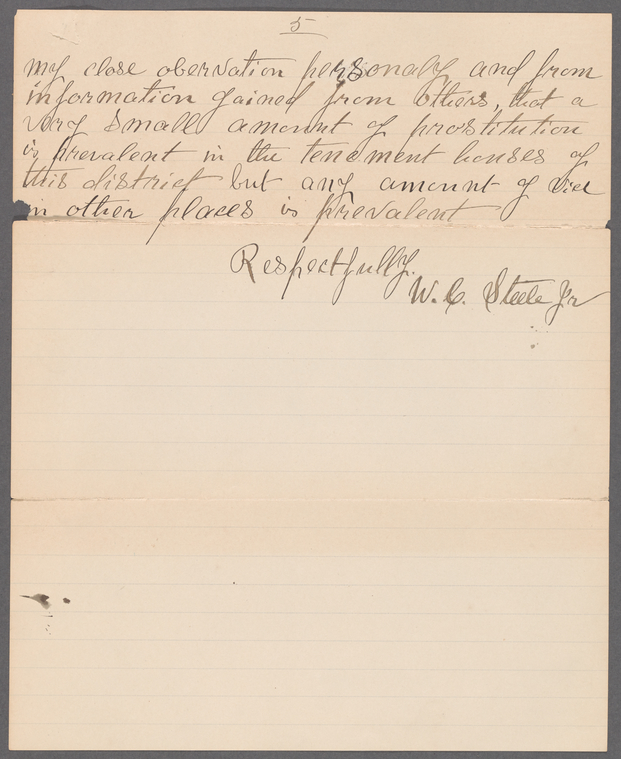 5
my close obervation personaly and from
information gained from others, that a
very small amount of prostitution
is prevalent in the tenement houses of
this district but any amount of vice
in other places is prevalent
Respectfully.
W. C. Steele Jr